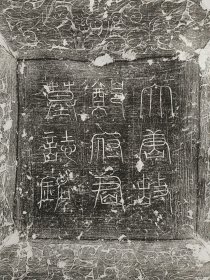 大唐故
鄭府君
墓誌銘